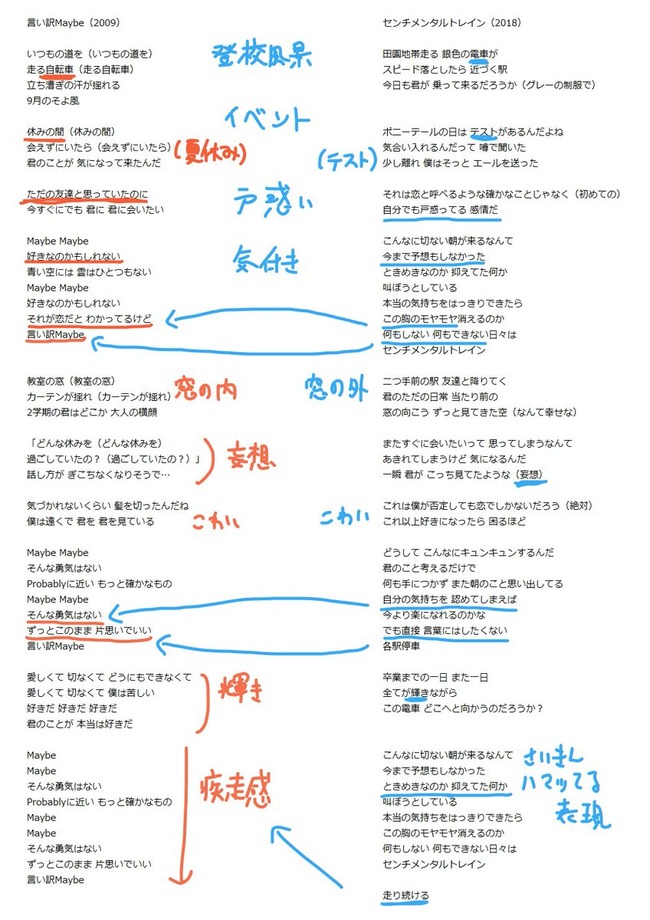 言い訳Maybe（2009）
いつもの道を（いつもの道を）
走る自転車（走る自転車）
立ち漕ぎの汗が揺れる
9月のそよ風
休みの間（休みの間）
会えずにいたら（会えずにいたら）
君のことが 気になって来たんだ
ただの友達と思っていたのに
今すぐにでも 君に 君に会いたい
Maybe Maybe
好きなのかもしれない
青い空には 雲はひとつもない
Maybe Maybe
好きなのかもしれない
それが恋だと わかってるけど
言い訳Maybe
教室の窓（教室の窓）
カーテンが揺れ（カーテンが揺れ）
2学期の君はどこか 大人の横顔
「どんな休みを（どんな休みを）
過ごしていたの？（過ごしていたの？）」
話し方が ぎこちなくなりそうで…
気づかれないくらい 髪を切ったんだね
僕は遠くで 君を 君を見ている
Maybe Maybe
そんな勇気はない
Probablyに近い もっと確かなもの
Maybe Maybe
そんな勇気はない
ずっとこのまま 片思いでいい
言い訳Maybe
愛しくて 切なくて どうにもできなくて
愛しくて 切なくて 僕は苦しい
好きだ 好きだ 好きだ
君のことが 本当は好きだ
Maybe
Maybe
そんな勇気はない
Probablyに近い もっと確かなもの
Maybe
Maybe
そんな勇気はない
ずっとこのまま 片思いでいい
言い訳Maybe
登校風景
イベント
(夏休み)
(テスト)
戸惑い
気付き
窓の内
窓の外
妄想
こわい
こわい
輝き
疾走感
センチメンタルトレイン（2018）
田園地帯走る 銀色の電車が
スピード落としたら 近づく駅
今日も君が 乗って来るだろうか（グレーの制服で）
ポニーテールの日は テストがあるんだよね
気合い入れるんだって 噂で聞いた
少し離れ 僕はそっと エールを送った
それは恋と呼べるような確かなことじゃなく（初めての）
自分でも戸惑ってる 感情だ
こんなに切ない朝が来るなんて
今まで予想もしなかった
ときめきなのか 抑えてた何か
叫ぼうとしている
本当の気持ちをはっきりできたら
この胸のモヤモヤ消えるのか
何もしない 何もできない日々は
センチメンタルトレイン
二つ手前の駅 友達と降りてく
君のただの日常 当たり前の
窓の向こう ずっと見てきた空（なんて幸せな）
またすぐに会いたいって 思ってしまうなんて
あきれてしまうけど 気になるんだ
一瞬 君が こっち見てたような（妄想）
これは僕が否定しても恋でしかないだろう（絶対）
これ以上好きになったら 困るほど
どうして こんなにキュンキュンするんだ
君のこと考えるだけで
何も手につかず また朝のこと思い出してる
自分の気持ちを 認めてしまえば
今より楽になれるのかな
でも直接 言葉にはしたくない
各駅停車
卒業までの一日 また一日
全てが輝きながら
この電車 どこへと向かうのだろうか？
こんなに切ない朝が来るなんて
今まで予想もしなかった
ときめきなのか 抑えてた何か
叫ぼうとしている
本当の気持ちをはっきりできたら
この胸のモヤモヤ消えるのか
何もしない 何もできない日々は
センチメンタルトレイン
走り続ける
さいきん
ハマッてる
表現